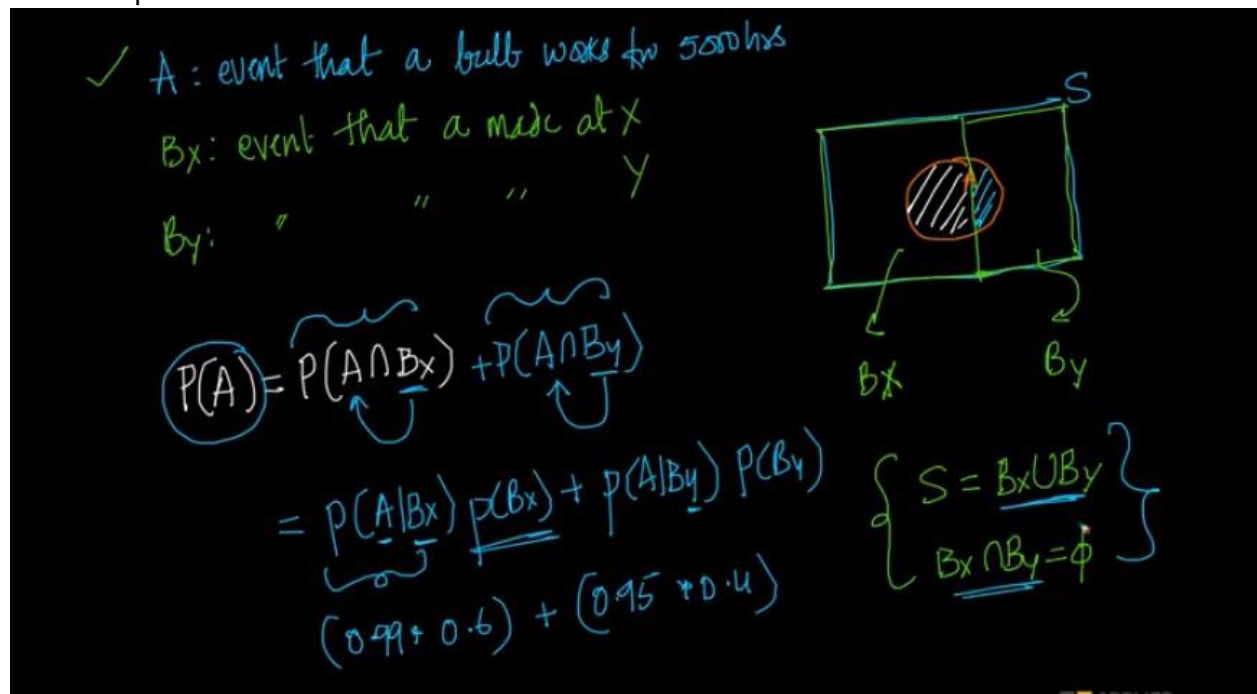 ✓ A : event that a bulb works for 5000hrs
Bx: event that a made at X
By: " " " Y
S
Bx By
P(A) = P(A∩Bx) + P(A∩By)
= P(A|Bx) P(Bx) + P(A|By) P(By)
(0.99 * 0.6) + (0.95 * 0.4)
{ S = Bx∪By
Bx ∩By = ϕ }